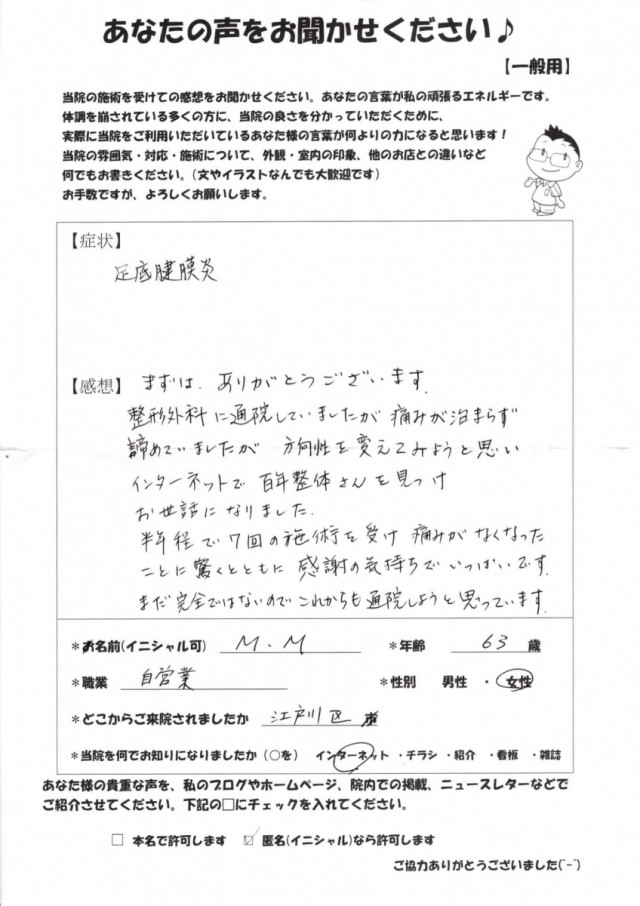 あなたの声をお聞かせください♪
【一般用】
当院の施術を受けての感想をお聞かせください。あなたの言葉が私の頑張るエネルギーです。
体調を崩されている多くの方に、当院の良さを分かっていただくために、
実際に当院をご利用いただいているあなた様の言葉が何よりの力になると思います！
当院の雰囲気・対応・施術について、外観・室内の印象、他のお店との違いなど
何でもお書きください。（文やイラストなんでも大歓迎です）
お手数ですが、よろしくお願いします。
【症状】
足底腱膜炎
【感想】まずは、ありがとうございます。
整形外科に通院していましたが痛みが治まらず
諦めていましたが 方向性を変えてみようと思い
インターネットで百年整体さんを見つけ
お世話になりました.
半年程で7回の施術を受け 痛みがなくなった
ことに驚くとともに感謝の気持ちでいっぱいです.
まだ完全ではないのでこれからも通院しようと思っています.
＊お名前(イニシャル可) M.M ＊年齢 63 歳
＊職業 自営業 ＊性別 男性 ・ 女性
＊どこからご来院されましたか 江戸川区
＊当院を何でお知りになりましたか（○を） インターネット ・チラシ ・紹介 ・看板 ・雑誌
あなた様の貴重な声を、私のブログやホームページ、院内での掲載、ニュースレターなどで
ご紹介させてください。下記の□にチェックを入れてください。
□ 本名で許可します ☑ 匿名(イニシャル)なら許可します
ご協力ありがとうございました(^-^)